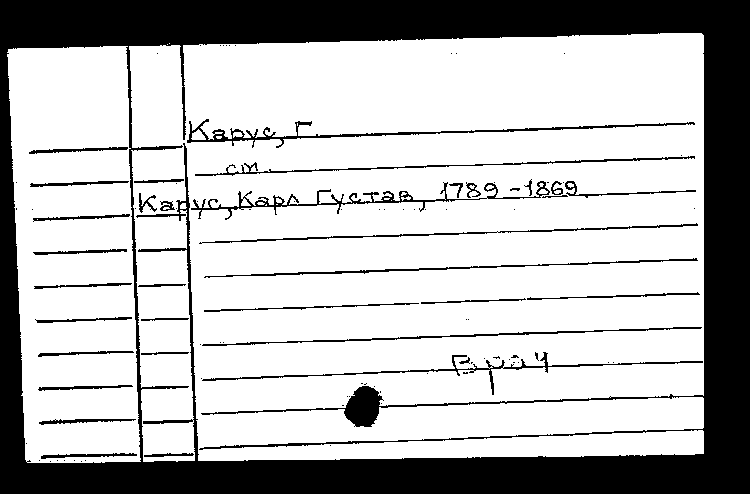 Карус, Г.
см.
Карус, Карл Густав, 1789-1869.
Врач